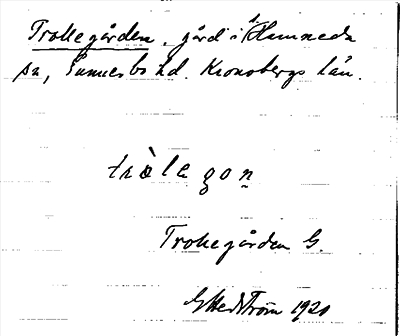 Trollegården, gård i Hamneda
sn, Sunnerbo hd. Kronobergs län.
tròlegon
Trollegården G.
G Hedström 1920